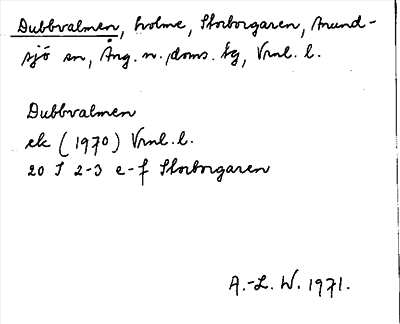 Dubbvalmen, holme, Storborgaren, Anund-
sjö sn, Ång. n. doms. tg, Vrnl. l.
Dubbvalmen
ek (1970) Vrnl. l.
20 I 2-3 e-f Storborgaren
A.-L. W. 1971.